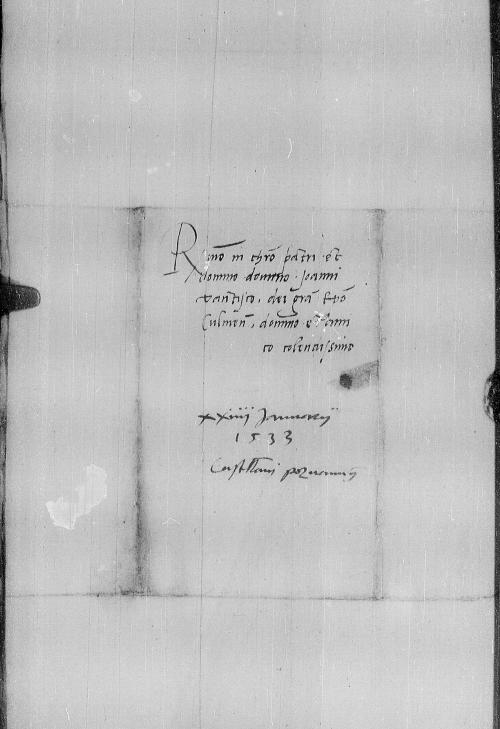 R mo in chro patri et
domino domino Joanni
dantisco, dei gra Epo
Culmen, domino et ami
co colendissimo
xxiiii Januarii
1533
Castellani poznanien